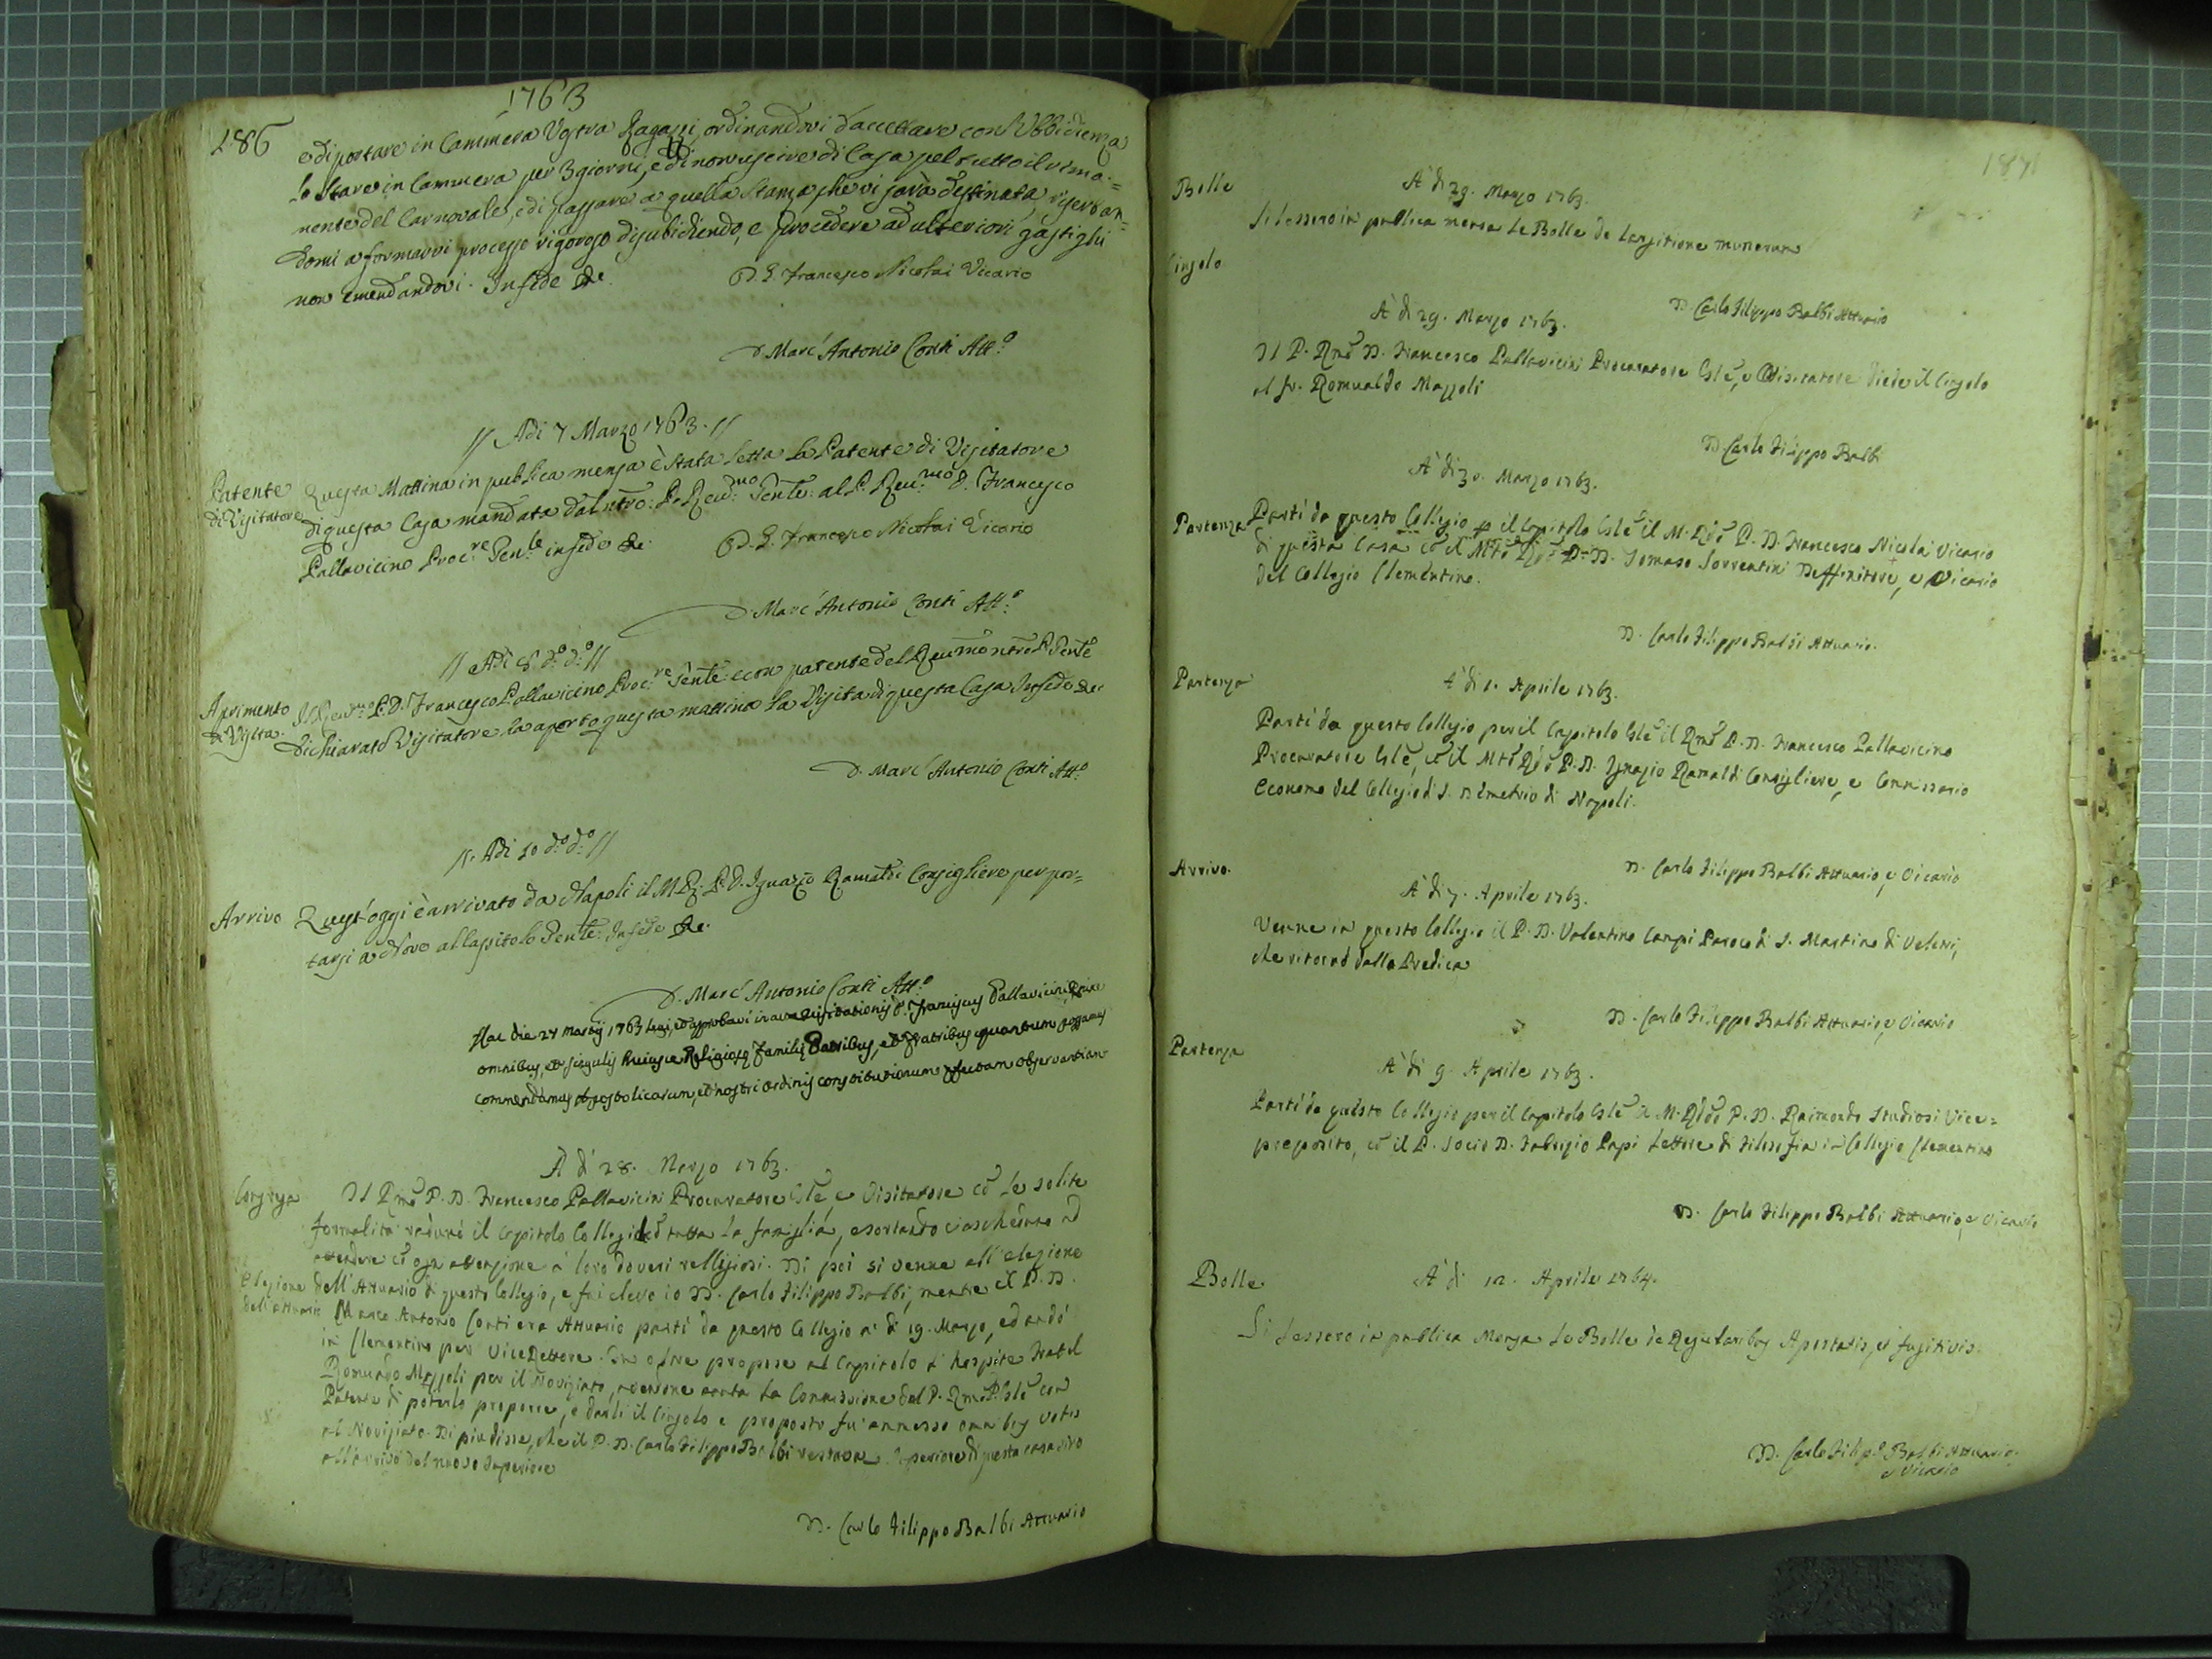 1763
186
e di portare in Cammera Vostra Ragazzi, ordinandovi d'accettare con Ubbidienza
lo stare in Cammera per 3 giorni, e di non uscire di Casa pel tutto il rima=
nente del Carnovale, e di passare a quella Stanza che vi sarà destinata riserban=
domi a formarvi processo rigoroso disubidiendo, e procedere ad ulteriori gastighi
non emendandovi. In fede &c.
D. Francesco Nicolai Vicario
D. Marc'Antonio Conti Att.o
// Adi 7 Marzo 1763. //
Patente
di Visitatore
Questa Mattina in publica mensa è stata letta la Patente di Visitatore
di questa Casa mandata dal ntro: P. Reud:mo Gente: al P. Reu:mo D. Francesco
Pallavicino Proc:re Gen:le in fede &c.
D. Francesco Nicolai Vicario
D. Marc'Antonio Conti Att:o
// Adi 8 d:o d:o //
Aprimento
di Visita.
Il Reu:mo P. D. Francesco Pallavicino Proc:re Gente: e con patente del Reumo ntro P. Gente
dichiarato Visitatore ha aperto questa mattina la Visita di questa Casa In fede &c.
D. Marc'Antonio Conti Att:o
// Adi 10 d:o d:o //
Arrivo
Quest'oggi è arrivato da Napoli il M. R. P. D. Ignazio Ramaldi Consigliere per por=
tarsi a dove al Capitolo Gente: In fede &c.
D. Marc'Antonio Conti Att:o
Hac die 27 Martij 1763 legi, et approbavi in actu visitationis D. Franciscus Pallavicini
omnibus, et singulis huiusce Religiosę Familię Patribus, et Fratribus quantum possumus
commendamus Apostolicarum, et nostri ordinis constitutionum exactam observantiam
A' di 28. Marzo 1763.
Il Rmo P. D. Francesco Pallavicini Procuratore Gle e Visitatore cō le solite
formalità radunò il Capitolo Collegiale cō tutta la famiglia, esortando ciascheduno ad
attendere cō ogni attenzione a' loro doveri religiosi. Di poi si venne all'elezione
Elezione
dell'Attuario
dell'Attuario di questo Collegio, e fui eletto io D. Carlo Filippo Balbi, mentre il P. D.
Marco Antonio Conti era Attuario partì da questo Collegio a' di 19. Marzo, ed andò
in Clementino per ViceRettore. In oltre propose al Capitolo l'hospite Fratel
Romualdo Mazzoli per il Noviziato, avendone avuta la Commissione dal P. Rmo P. Gle con
Patente di poterlo proporre, e darli il Cingolo e proposto fu ammesso omnibus votis
al Noviziato. Di più disse, che il P. D. Carlo Filippo Balbi restava Superiore di questa casa sino
all'arrivo del nuovo Superiore
D. Carlo Filippo Balbi Attuario
187
Bolle
A' di 29. Marzo 1763.
Si lessero in publica mensa le Bolle de Largitione munerum
D. Carlo Filippo Balbi Attuario
Cingolo
A' di 29. Marzo 1763.
Il P. Rmo D. Francesco Pallavicini Procuratore Gle, e Visitatore diede il Cingolo
al fr. Romualdo Mazzoli
D. Carlo Filippo Balbi
A' di 30. Marzo 1763.
Partenza
Partì da questo Collegio p il Capitolo Gle il M. Rdo P. D. Francesco Nicolai Vicario
di questa Casa cō il Mto Rdo P. D. Tomaso Sorrentini Deffinitore, e Vicario
del Collegio Clementino.
D. Carlo Filippo Balbi Attuario.
Partenza
A' di 1. Aprile 1763.
Partì da questo Collegio per il Capitolo Gle il Rmo P. D. Francesco Pallavicino
Procuratore Gle, cō il Mto Rdo P. D. Ignazio Ramaldi Consigliere, e Commissario
Economo del Collegio di S. Demetrio di Napoli.
D. Carlo Filippo Balbi Attuario, e Vicario
Arrivo.
A' di 7. Aprile 1763.
Venne in questo Collegio il P. D. Valentino Campi Paroco di S. Martino di Veletri,
che ritornò dalla Predica
D. Carlo Filippo Balbi Attuario, e Vicario
Partenza
A' di 9. Aprile 1763.
Partì da questo Collegio per il Capitolo Gle il M. Rdo P. D. Raimondo Studiosi Vice=
preposito, cō il P. Socio D. Fabrizio Papi Lettore di Filosofia in Collegio Clementino
D. Carlo Filippo Balbi Attuario, e Vicario
Bolle.
A' di 12. Aprile 1764.
Si lessero in publica Mensa le Bolle de Regularibus Apostatis, et fugitivis.
D. Carlo Filip.o Balbi Attuario.
e Vicario